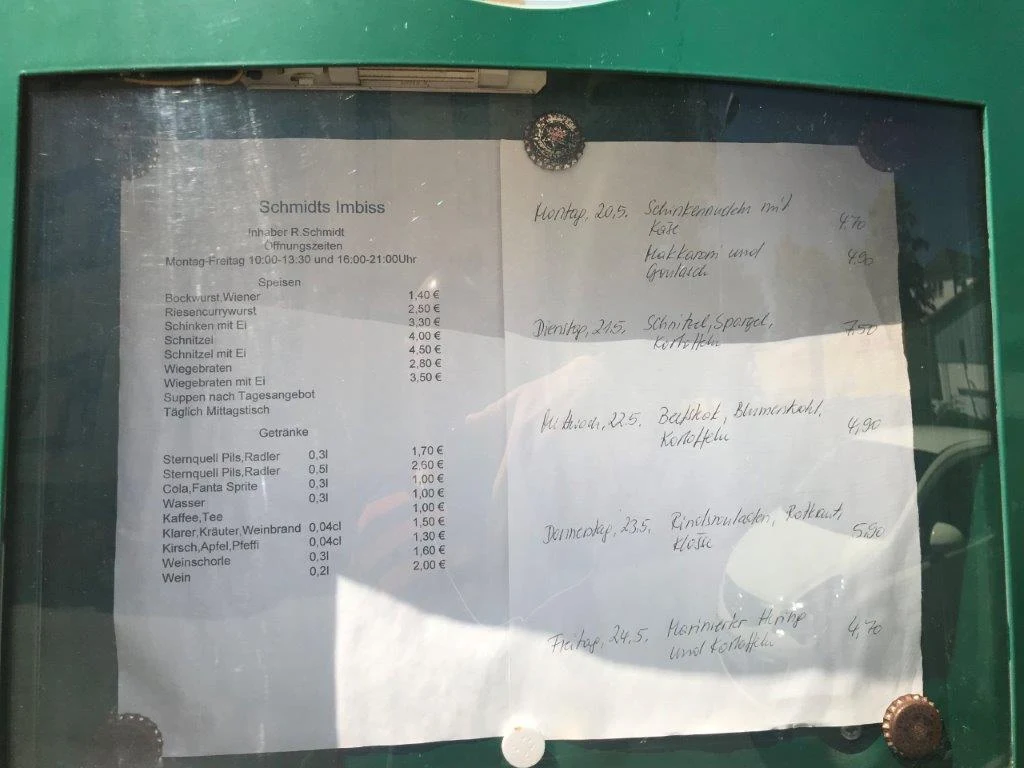 Schmidts Imbiss
Inhaber R.Schmidt
Öffnungszeiten
Montag-Freitag 10:00-13:30 und 16:00-21:00Uhr
Speisen
Bockwurst,Wiener 1,40 €
Riesencurrywurst 2,50 €
Schinken mit Ei 3,30 €
Schnitzel 4,00 €
Schnitzel mit Ei 4,50 €
Wiegebraten 2,80 €
Wiegebraten mit Ei 3,50 €
Suppen nach Tagesangebot
Täglich Mittagstisch
Getränke
Sternquell Pils,Radler 0,3l 1,70 €
Sternquell Pils,Radler 0,5l 2,60 €
Cola,Fanta Sprite 0,3l 1,00 €
Wasser 0,3l 1,00 €
Kaffee,Tee 1,00 €
Klarer,Kräuter,Weinbrand 0,04cl 1,50 €
Kirsch,Apfel,Pfeffi 0,04cl 1,30 €
Weinschorle 0,3l 1,60 €
Wein 0,2l 2,00 €
Montag, 20.5. Schinkennudeln mit
Käse 4.70
Makkaroni und
Goulasch 4.90
Dienstag, 21.5. Schnitzel, Spargel,
Kartoffeln 7.50
Mittwoch, 22.5. Beefsteak, Blumenkohl,
Kartoffeln 4,90
Donnerstag, 23.5. Rindsrouladen, Rotkraut,
Klöße 5,90
Freitag, 24.5. Marinierter Hering
und Kartoffeln 4,70